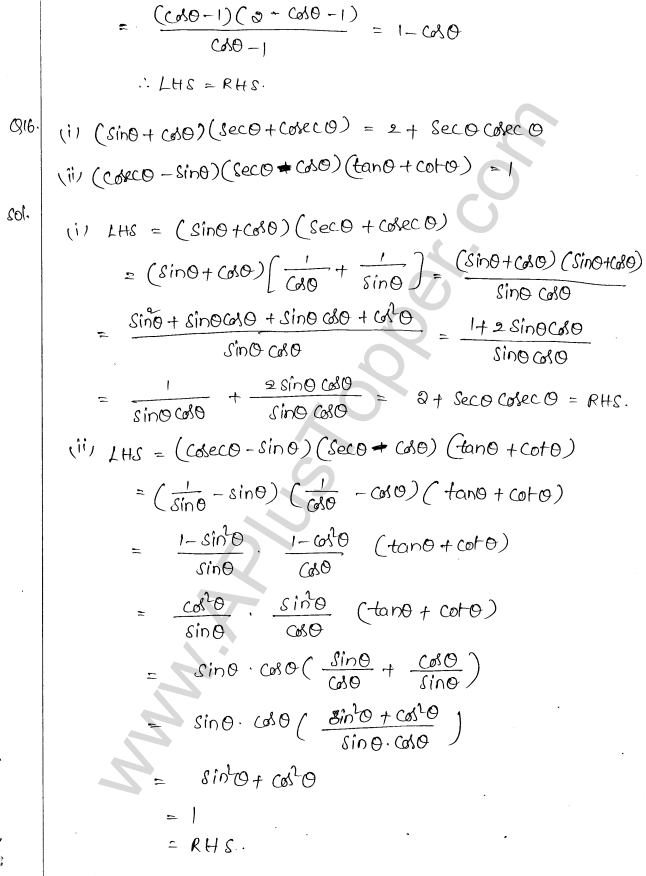 = (cosθ-1)(2-cosθ-1) / cosθ-1 = 1-cosθ
∴ LHS = RHS.
Q16. (i) (sinθ + cosθ)(secθ + cosecθ) = 2 + secθ cosecθ
(ii) (cosecθ - sinθ)(secθ - cosθ)(tanθ + cotθ) = 1
Sol. (i) LHS = (sinθ + cosθ)(secθ + cosecθ)
= (sinθ + cosθ)[1/cosθ + 1/sinθ] = (sinθ+cosθ)(sinθ+cosθ) / sinθ cosθ
= sin²θ + sinθcosθ + sinθ cosθ + cos²θ / sinθ cosθ = 1+2 sinθcosθ / sinθ cosθ
= 1 / sinθ cosθ + 2 sinθ cosθ / sinθ cosθ = 2 + secθ cosecθ = RHS.
(ii) LHS = (cosecθ - sinθ)(secθ - cosθ) (tanθ + cotθ)
= (1/sinθ - sinθ) (1/cosθ - cosθ) (tanθ + cotθ)
= 1-sin²θ / sinθ . 1-cos²θ / cosθ (tanθ + cotθ)
= cos²θ / sinθ . sin²θ / cosθ (tanθ + cotθ)
= sinθ . cosθ (sinθ/cosθ + cosθ/sinθ)
= sinθ . cosθ (sin²θ + cos²θ / sinθ.cosθ)
= sin²θ + cos²θ
= 1
= RHS.
www.APlusTopper.com